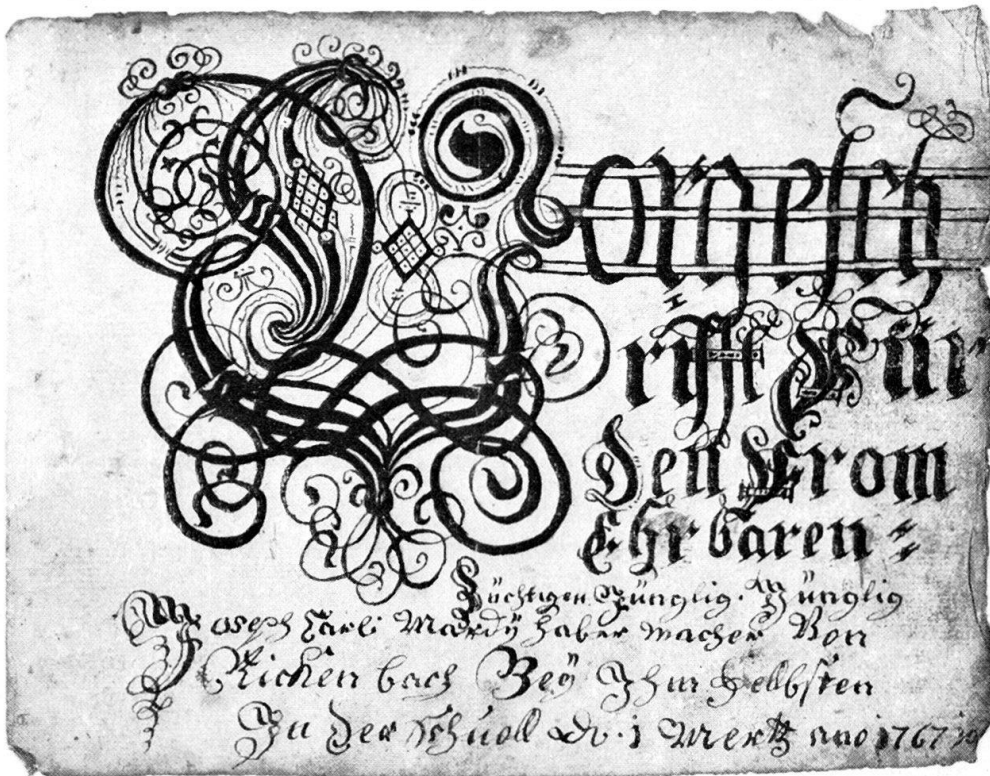 Vorgesch
rifft Für
Den From
Ehrbaren =
Züchtigen Jünglig. Jünglig
Joseph Carli Mardÿ haber macher Von
Rickenbach Beÿ Ihm Selbsten
In der Schuoll 1 Mertz ano 1767